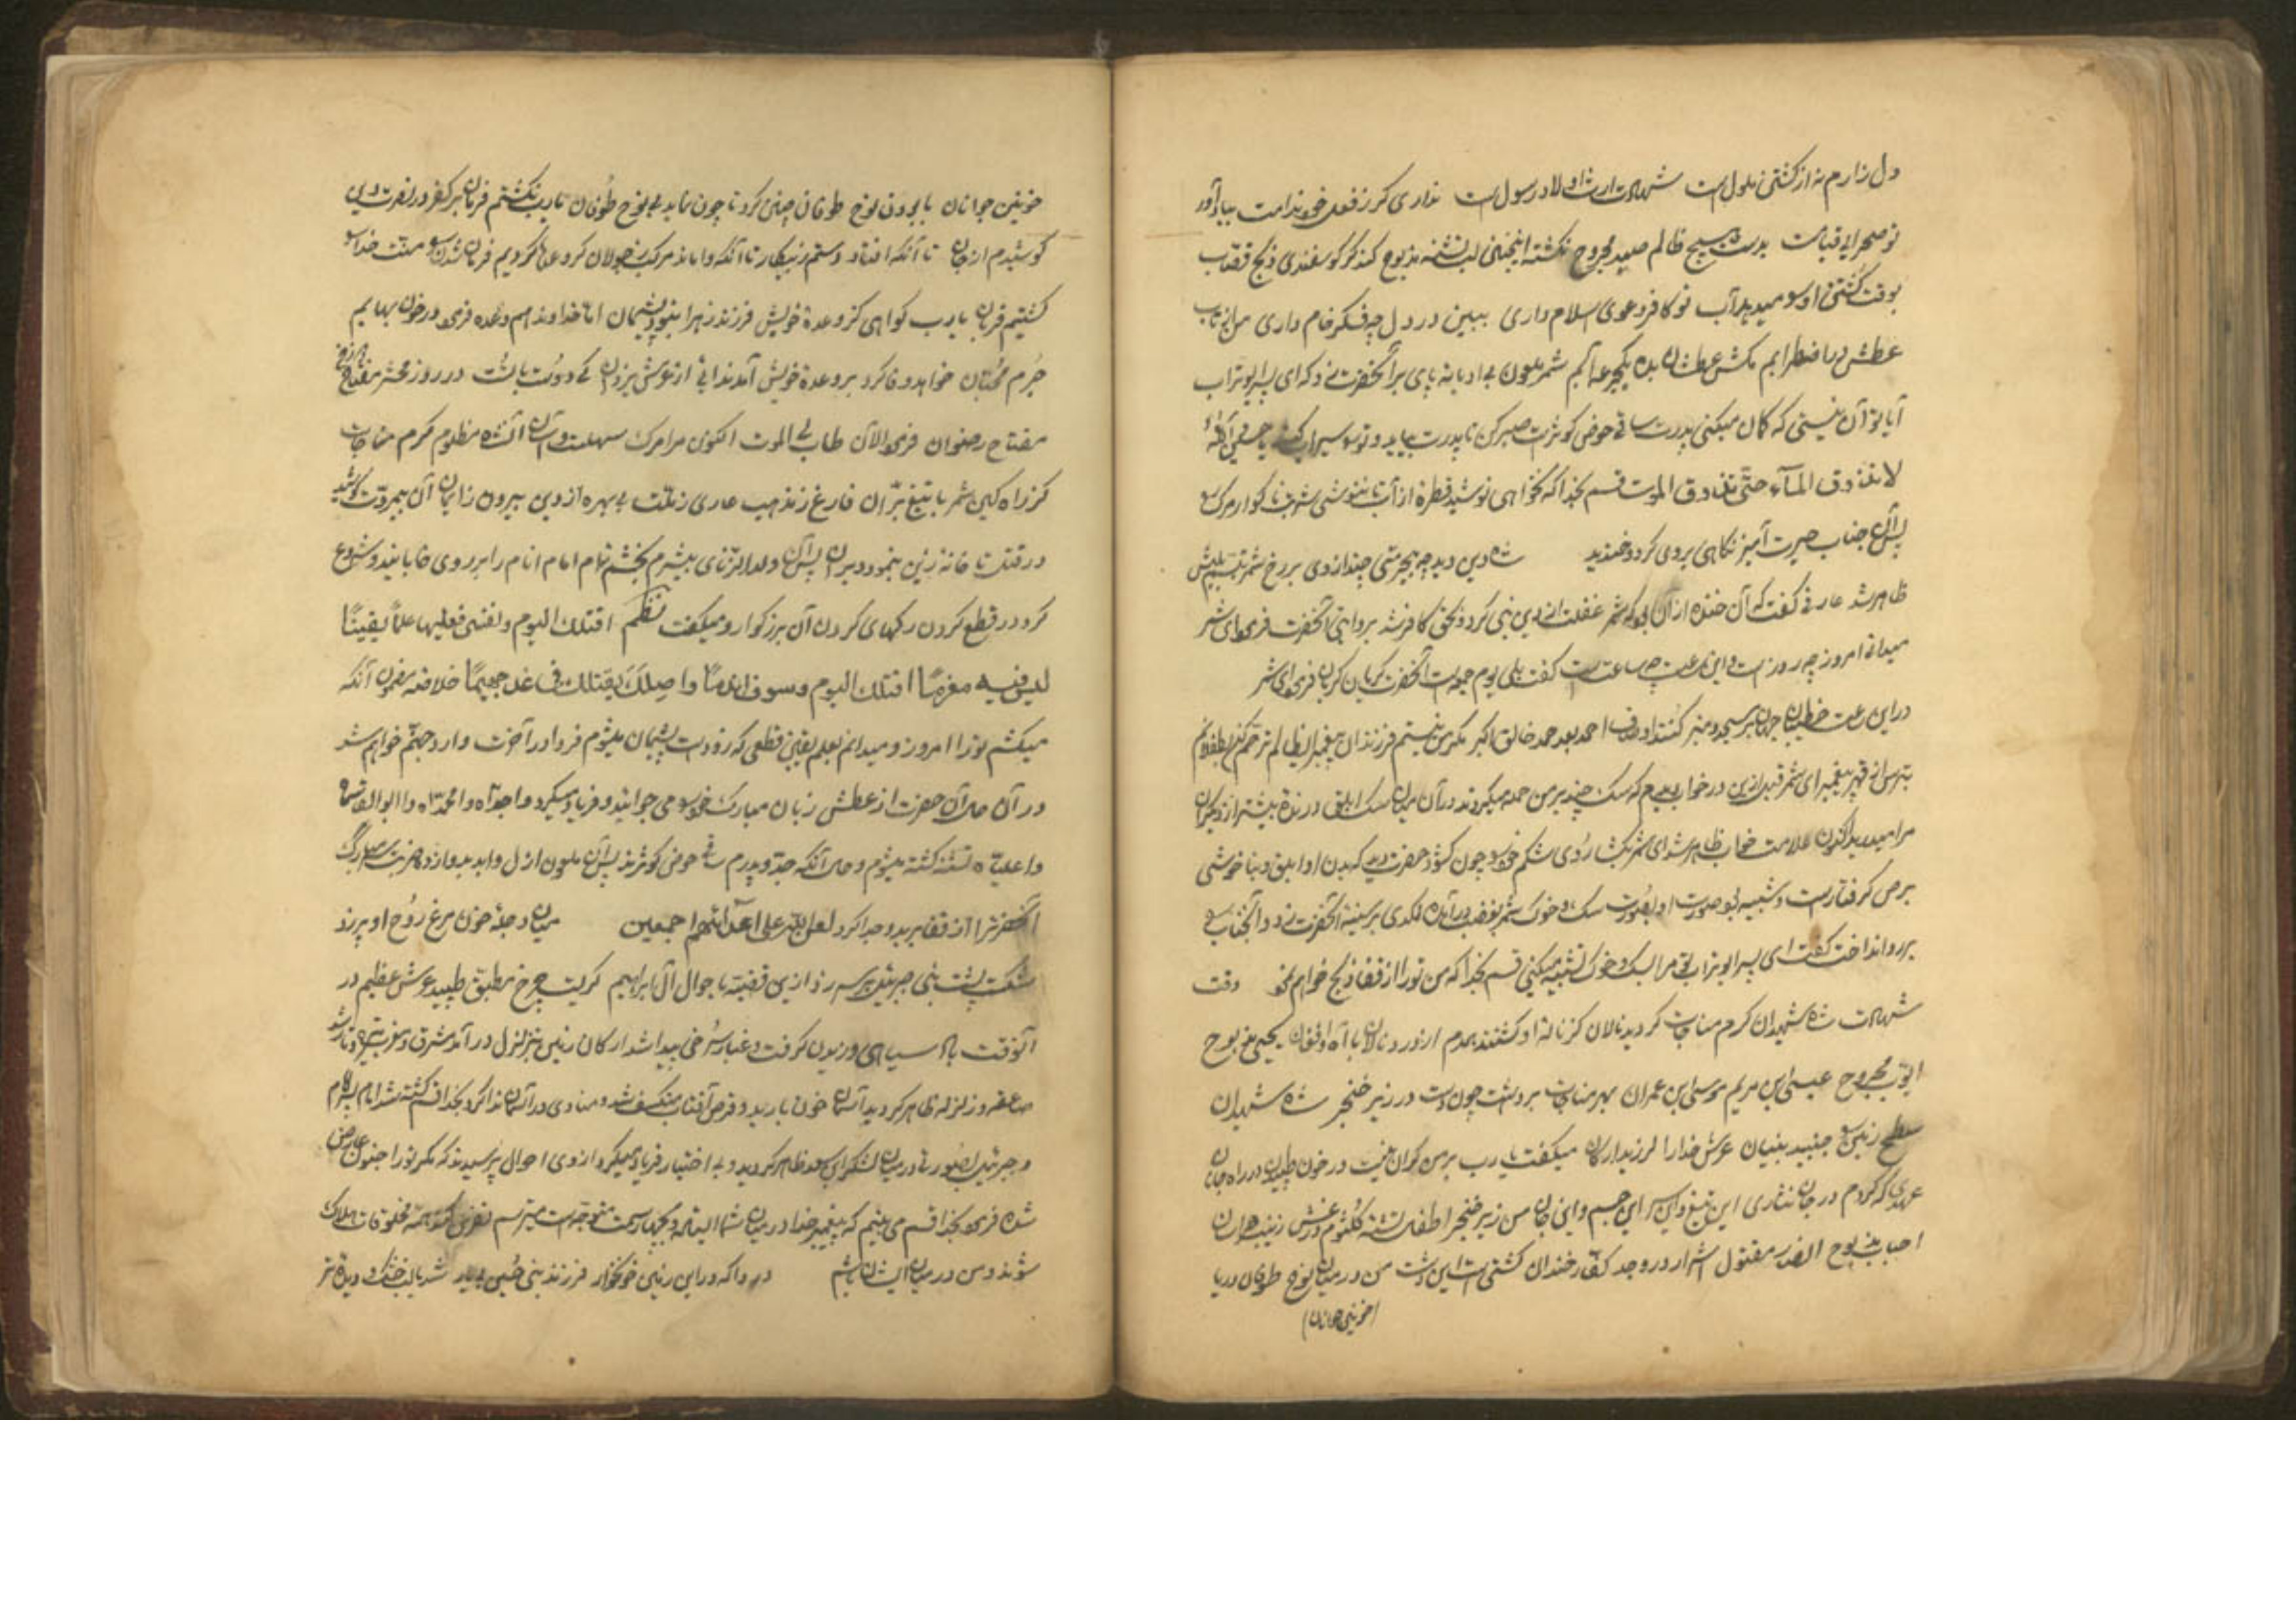 دل زارم نه از کشتن ملولست شهادت ارث اولاد رسولست نداری گر ز فعل خود ندامت بیاد آور
تو صحرای قیامت بدست هیچ ظالم صید مجروح نکشته اینچنین لب تشنه مذبوح کند گر گوسفندی ذبح قصّاب
بوقت کشتن او را میدهد آب تو کافر دعوی اسلام داری ببین در دل چه فکر خام داری من از تاب
عطش در اضطرابم مکش عطشان بده یکجرعه آبم شمر ملعون بی ادبانه پای بر آنحضرت زد که ای پسر ابوتراب
آیا تو آن نیستی که گمان میکنی پدرت ساقی حوض کوثرست صبر کن تا پدرت بیاید و تو را سیراب کند یا حسین
لا تذوق المآء حتّی تذوق الموت قسم بخدا که نخواهی نوشید قطرهٔ از آب تا ننوشی شربت ناگوار مرگ را
پس آن جناب حیرت آمیز نگاهی بروی کرد و خندید شاه دین دید چه بیحرمتی چند از وی بر رخ شمر تبسم
ظاهر شد عارفی گفت که آن خنده از آن بود که شمر غفلت از دین نبی کرد و بحق کافر شد بروایتی آنحضرت فرمود ای شمر
میدانی امروز چه روزست و این ساعت چه ساعت است گفت بلی یوم جمعه است آنحضرت گریان گریان فرمود ای شمر
در این ساعت خطیبان جهان بر مسجد و منبر کنند اوصاف احمد بعد حمد خالق اکبر مگر من نیستم فرزند آن پیغمبر ای ظالم ترحّم کن بطفلانم
بترس از قهر پیغمبر ای شمر قبل ازین در خواب دیدم که سگ چند بر من حمله میکردند در آن میان سگ ابلق درنده بیشتر از دیگران
مرا میدرید اکنون علامت خواب ظاهر شد ای شمر بگشا روی شکم خود را چون گشود حضرت دید که بدن او ابلق و بناخوشی
برص گرفتارست و شبیه بود صورت او بصورت سگ و خوک شمر بغضب درآمده لگدی بر سینهٔ آنحضرت زد و آنجناب را
بر رو انداخت گفت ای پسر ابوتراب تو مرا بسگ و خوک تشبیه میکنی قسم بخدا که من تو را از قفا ذبح خواهم نمود وقت
شهادت شاه شهیدان گرم مناجات گردید نالان کز نالهٔ او گشتند بیدم از نور و نالان با آه و افغان یحیی مذبوح
ایّوب مجروح عیسی ابن مریم موسی ابن عمران بهر مناجات برداشت چون دست در زیر خنجر شاه شهیدان
سطح زمین جنبید بنیان عرش خدا را لرزید ارکان میگفت یا رب بر من گران نیست در خون طپیدن در راه جانان
عهدی که کردم در جان نثاری این تیغ و این سر این جسم و این جان من زیر خنجر اطفال تشنه کلثوم در غش زینب هراسان
احباب مذبوح الصدر مقتول اشرار در وجد کفّار خندان کشتی است این دشت من در میان نوح طوفان دریا
(خونین جوانان)
خونین جوانان با بودن نوح طوفان چنین کرد تا چون نماید بی نوح طوفان یا رب نکشتم فرمانبر کفر در نصرت دین
کوشیدم از جان تا آنکه افتاد دستم ز پیکار تا آنکه واماند مرکب ز جولان کردی عطا گردیم فرمان شدی منّت خدا را
کشتیم قربان یا رب گواهی کز وعدهٔ خویش فرزند زهرا نبود پشیمان امّا خداوند هم وعده فرمود در خون بهایم
جرم محبّان خواهد وفا کرد بر وعدهٔ خویش آمد ندائی از عرش یزدان کی دوست بالتست در روز محشر مفتاح دوزخ
مفتاح رضوان فرمود الآن طاب لی الموت اکنون مرا مرگ سهلست و آسان آن شاه مظلوم گرم مناجات
کز راه کین شمر با تیغ برّان فارغ ز مذهب عاری ز ملّت بی بهره از دین بیرون ز ایمان آن بیمروّت کوشید
در قتل تا خانهٔ زین بنمود ویران پس آن ولد الزّنای بیشرم بخشم تمام امام انام را بر روی خابانید و شروع
کرد در قطع کردن رگهای گردن آن بزرگوار و میگفت نظم اقتلک الیوم و نفسی فعلیها علماً یقیناً
لیس فیه مغرما اقتلک الیوم و سوف اندما و اصلک بقتلک فی غد جهیما خلاصه مضمون آنکه
میکشم تو را امروز و میدانم بعلم یقین قطعی که زودست پشیمان میشوم فردا در آخرت وارد جهنّم خواهم شد
در آن حال آن حضرت از عطش زبان مبارک خود را می جوانید و فریاد میکرد وا جدّاه وا محمّداه وا ابوالقاسماه
وا علیّاه تشنه کشته میشوم و حال آنکه جدّ و پدرم ساقی حوض کوثرند پس آن ملعون ازل و ابد بدوازده ضربت سر مبارک
آنحضرترا از قفا برید و جدا کرد لعن الله علی اعدائهم اجمعین میان دجلهٔ خون مرغ روح او پر زد
شکست پشت نبی جبرئیل بر سر زد ازین قضیّه باحوال آل ابراهیم گریست چرخ مطبّق طپید عرش عظیم در
آنوقت باد سیاهی وزیدن گرفت و غبار سرخی پیدا شد ارکان زمین بتزلزل در آمد مشرق و مغرب تیره و تار شد
صاعقه و زلزله ظاهر گردید آسمان خون بارید و قرص آفتاب منکسف شد و منادی در آسمان ندا کرد بخدا قسم کشته شد امام پسر امام
و جبرئیل بصورتی در میان لشکر ابن سعد ظاهر گردید و بی اختیار فریاد میکرد از وی احوال پرسیدند که مگر تو را جنون عارض
شده فرمود بخدا قسم می بینم که پیغمبر خدا در میان شما ایستاده و بچهار سمت متوجّه است میترسم نفرین کند همه مخلوقات هلاک
شوند و من در میان ایشان باشم دردا که در این زمین خونخوار فرزند نبی حسین بی یار شد با لب خشک و دیدهٔ تر